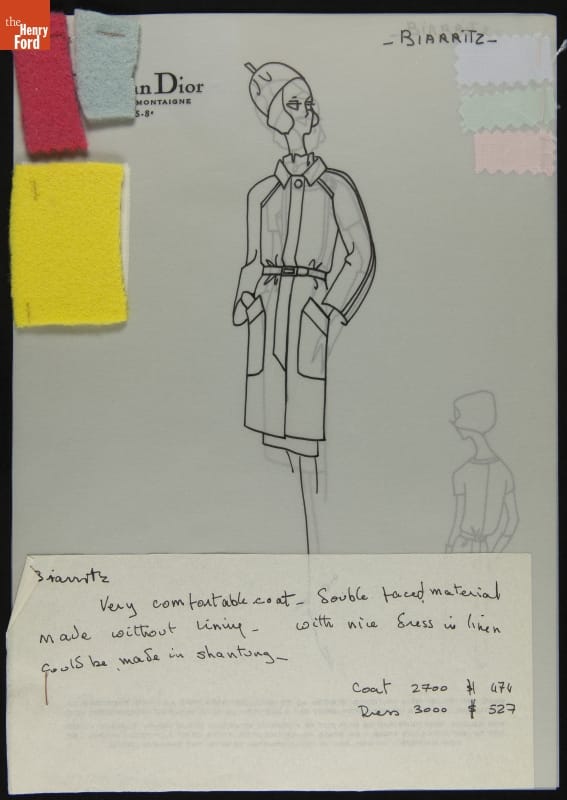 the
Henry
Ford
- BIARRITZ -
an Dior
MONTAIGNE
5-8e
Biarritz
Very comfortable coat - Double faced material
made without lining - with nice dress in linen
could be made in shantung -
Coat 2700 $ 474
Dress 3000 $ 527